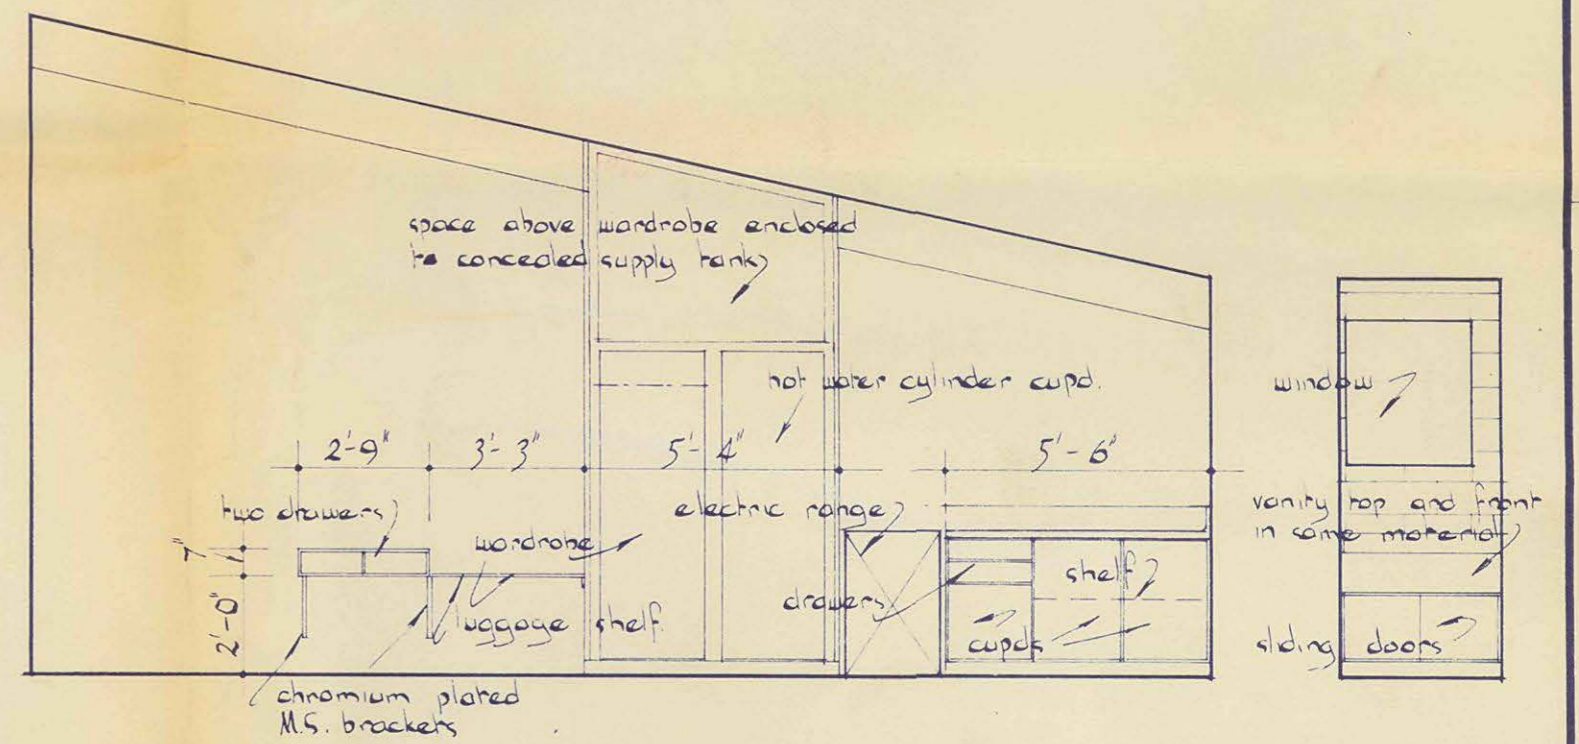 space above wardrobe enclosed
to concealed supply tank
hot water cylinder cupd.
window
2'-9" 3'-3" 5'-4" 5'-6"
two drawers
electric range
vanity top and front
in same material
7"
wardrobe
shelf
drawers
2'-0"
luggage shelf
cupds
sliding doors
chromium plated
M.S. brackets